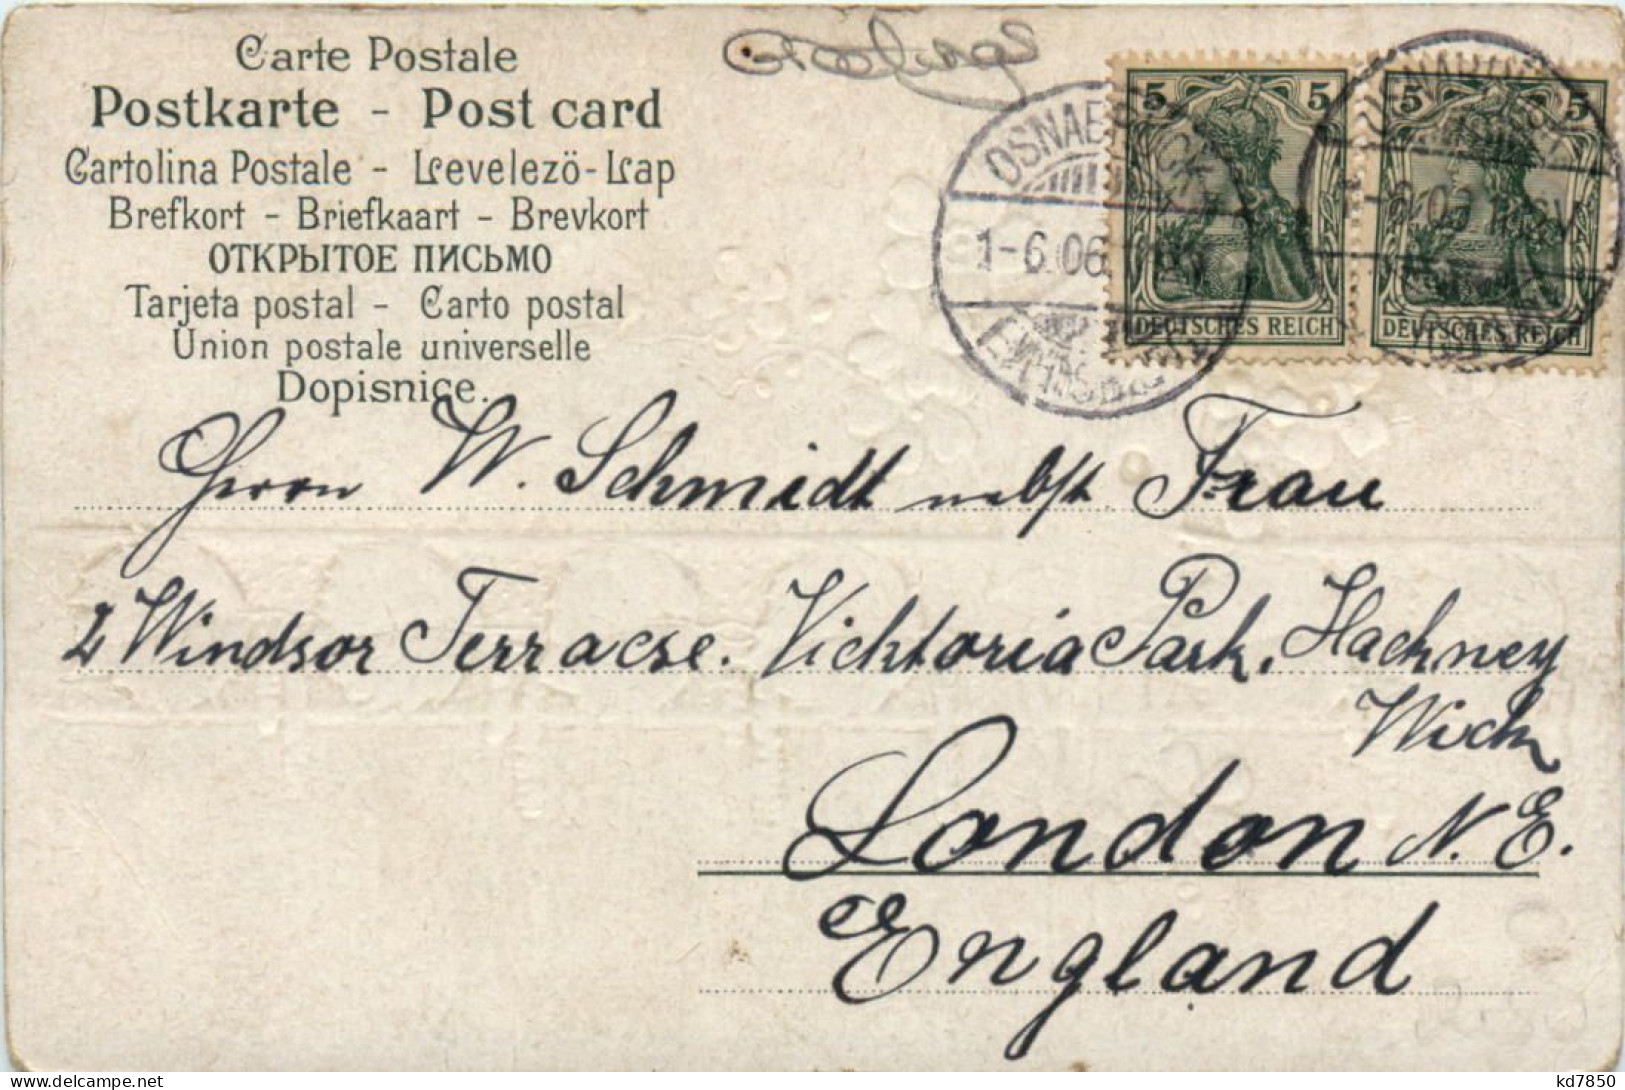 Carte Postale
Postkarte - Post card
Cartolina Postale - Levelezö-Lap
Brefkort - Briefkaart - Brevkort
ОТКРЫТОЕ ПИСЬМО
Tarjeta postal - Carto postal
Union postale universelle
Dopisnice.
OSNABRÜCK
1-6.06
5 5
DEUTSCHES REICH
5 5
DEUTSCHES REICH
Herrn W. Schmidt nebst Frau
2 Windsor Terracse. Vicktoria Park, Hackney
Wick
London N.E.
England
kd7850